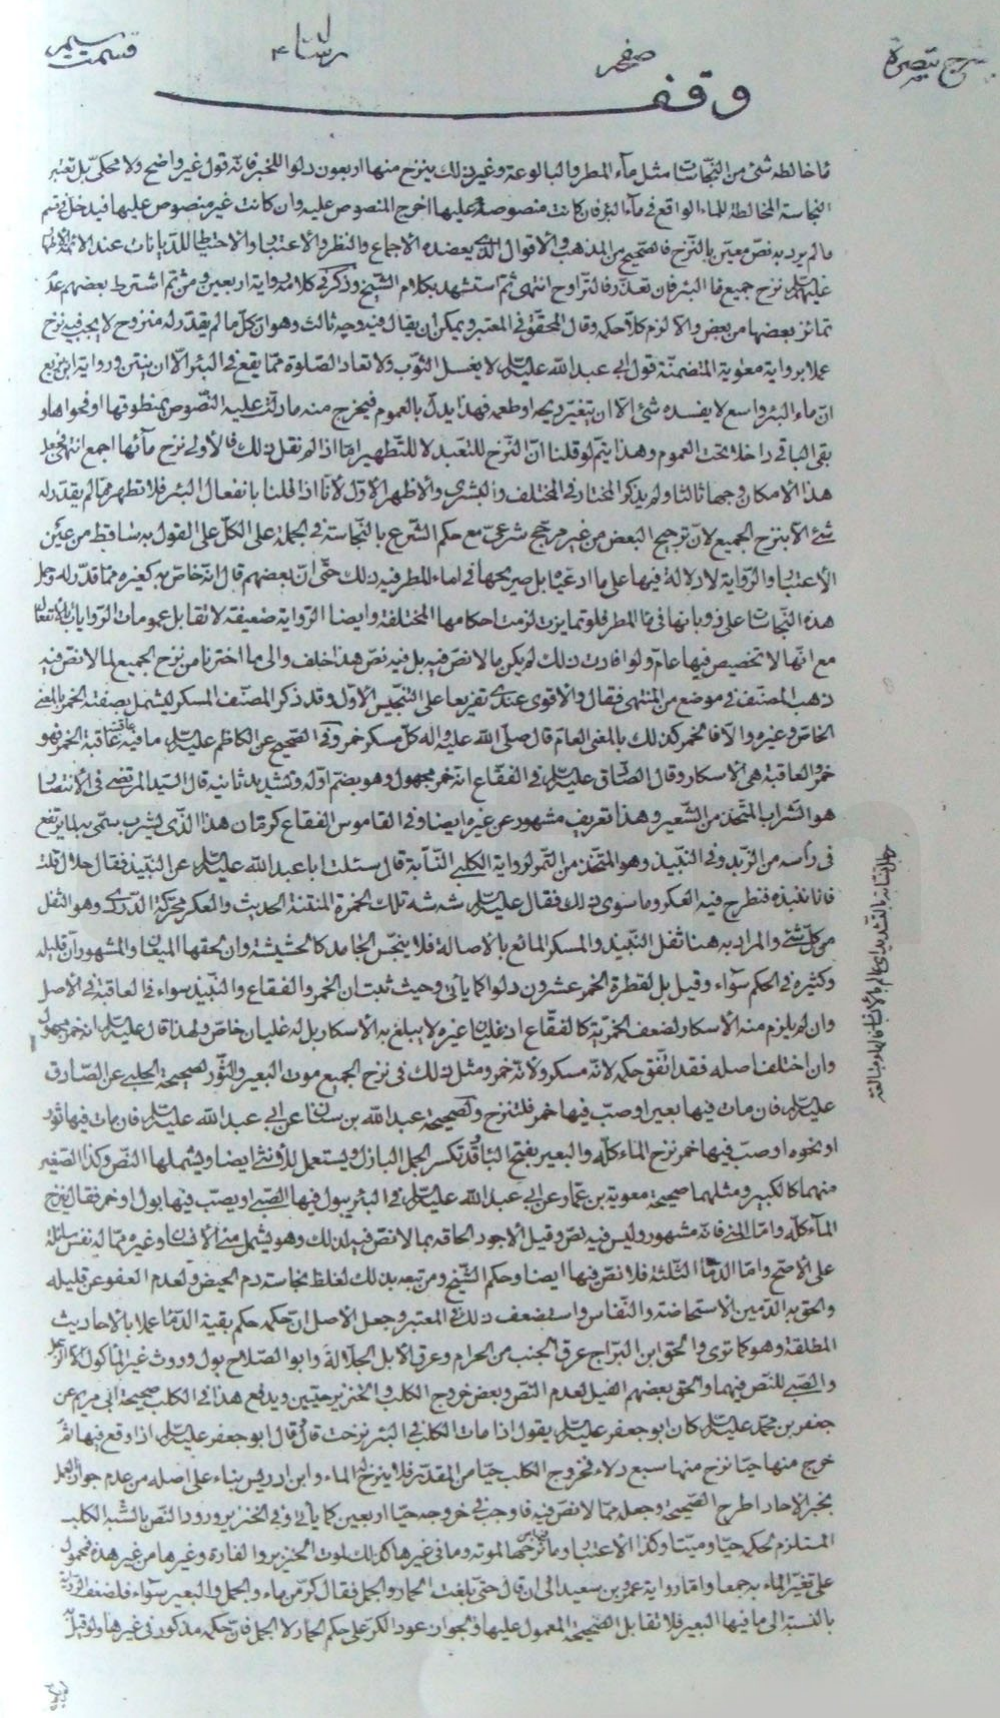 شرح تبصرة صفحه رستا ۴ قسمت سيم
وقف
ما خالطه شئ من النجاسات مثل ماء المطر والبالوعة وغير ذلك ينزح منها اربعون دلوا للخبر فانه قول غير واضح ولا محكى بل تعتبر
النجاسة المخالطة للماء الواقع فى ماء البئر فان كانت منصوصة عليها اخرج المنصوص عليه وان كانت غير منصوص عليها فيدخل فى قسم
ما لم يرد به نص معين بالنزح فالصحيح من المذهب والاقوال الذى يعضده الاجماع والنظر والاعتبار والاحتياط للديانات عند الائمة الاطهار
عليهم السلام نزح جميع ماء البئر فان تعذر فالتراوح انتهى ثم استشهد بكلام الشيخ وذكر فى كلامه رواية اربعين ومن ثم اشترط بعضهم عدم
تمايز بعضها من بعض والا لزم كلا حكمه وقال المحقق فى المعتبر ويمكن ان يقال فيه وجه ثالث وهو ان كل ما لم يقدر له منزوح لا يجب فيه نزح
عملا برواية معوية المتضمنة قول ابى عبد الله عليه السلام لا يغسل الثوب ولا تعاد الصلوة مما يقع فى البئر الا ان ينتن ورواية ابن بزيع
ان ماء البئر واسع لا يفسده شئ الا ان يتغير ريحه او طعمه فهذا يدل بالعموم فيخرج منه ما دلت عليه النصوص بمنطوقها او فحواها و
بقى الباقى داخلا تحت العموم وهذا يتم لو قلنا ان النزح للتعبد لا للتطهير اما اذا لم نقل ذلك فالاولى نزح مائها اجمع انتهى فجعل
هذا الامكان وجها ثالثا ولم يذكر المختار فى المختلف والبشرى والاظهر الاول لانا اذا قلنا بانفعال البئر فلا تطهر مما لم يقدر له
شئ الا بنزح الجميع لان ترجيح البعض من غير مرجح شرعى مع حكم الشرع بالنجاسة فى الجملة على الكل على القول به ساقط من عين
الاعتبار والرواية لا دلالة فيها على ما ادعيا بل صريحها فى ماء المطر فيه ذلك حتى ان بعضهم قال انه خاص به كغيره مما قدر له وحمل
هذه النجاسات على ذوبانها فى ماء المطر فلو تمايزت لزمت احكامها المختلفة وايضا الرواية ضعيفة لا تقابل عمومات الروايات بالانفعال
مع انها لا تخصيص فيها عام ولو افادت ذلك لم يكن ما لا نص فيه بل فيه نص هذا خلف والى ما اخترنا من نزح الجميع لما لا نص فيه
ذهب المصنف فى موضع من المنتهى فقال والاقوى عندى تفريعا على التنجيس الاول وقد ذكر المصنف المسكر ليشمل بصفته الخمر بالمعنى
الخاص وغيره والا فالخمر كذلك بالمعنى العام قال صلى الله عليه واله كل مسكر خمر وفى الصحيح عن الكاظم عليه السلام ما فيه عاقبته عاقبة الخمر فهو
خمر والعاقبة هى الاسكار وقال الصادق عليه السلام فى الفقاع انه خمر مجهول وهو بضم اوله وتشديد ثانيه قال السيد المرتضى فى الانتصار
هو الشراب المتخذ من الشعير وهذا تعريف مشهور عن غيره ايضا وفى القاموس الفقاع كرمان هذا الذى يشرب سمى به لما يرتفع
فى راسه من الزبد وفى النبيذ وهو المتخذ من التمر لرواية الكلبى النسابة قال سئلت ابا عبد الله عليه السلام عن النبيذ فقال حلال قلت
فانا ننبذه فنطرح فيه العكر وما سوى ذلك فقال عليه السلام شه شه تلك الخمرة المنتنة الحديث والعكر محركة الدردى وهو الثفل
من كل شئ والمراد به هنا ثفل النبيذ والمسكر المائع بالاصالة فلا ينجس الجامد كالحشيشة وان لحقها الميعان والمشهور ان قليله
وكثيره فى الحكم سواء وقيل بل لقطرة الخمر عشرون دلوا كما ياتى وحيث ثبت ان الخمر والفقاع والنبيذ سواء فى العاقبة فى الاصل
وان لم يلزم منه الاسكار لضعف الخمرية كالفقاع اذ غليان غيره لا يبلغ به الاسكار بل له غليان خاص ولهذا قال عليه السلام انه خمر مجهول
وان اختلف اصله فقد اتفق حكمه لانه مسكر ولانه خمر ومثل ذلك فى نزح الجميع موت البعير والثور لصحيحة الحلبى عن الصادق
عليه السلام فان مات فيها بعير او صب فيها خمر فلتنزح ولصحيحة عبد الله بن سنان عن ابى عبد الله عليه السلام فان مات فيها ثور
او نحوه او صب فيها خمر نزح الماء كله والبعير بفتح الباء وقد تكسر الجمل البازل ويستعمل للانثى ايضا ويشملها النص وكذا الصغير
منهما كالكبير ومثلهما صحيحة معوية بن عمار عن ابى عبد الله عليه السلام فى البئر يبول فيها الصبى او يصب فيها بول او خمر فقال ينزح
الماء كله واما المنى فانه مشهور وليس فيه نص وقيل الاجود الحاقه بما لا نص فيه لذلك وهو يشمل منى الانسان وغيره مما له نفس سائلة
على الاصح واما الدماء الثلثة فلا نص فيها ايضا وحكم الشيخ ومن تبعه بذلك لغلظ نجاسة دم الحيض ولعدم العفو عن قليله
والحق به الدمين الاستحاضة والنفاس واستضعف ذلك فى المعتبر وجعل الاصل ان حكمه حكم بقية الدماء عملا بالاحاديث
المطلقة وهو كما ترى والحق ابن البراج عرق الجنب من الحرام وعرق الابل الجلالة وابو الصلاح بول وروث غير الماكول الا الرجل
والصبى للنص فيهما والحق بعضهم الفيل لعدم النص وبعض خروج الكلب والخنزير حيين ويدفع هذا فى الكلب صحيحة ابى مريم عن
جعفر بن محمد عليه السلام كان ابو جعفر عليه السلام يقول اذا مات الكلب فى البئر نزحت قال وقال ابو جعفر عليه السلام اذا وقع فيها ثم
خرج منها حيا نزح منها سبع دلاء فخروج الكلب حيا من المقدر فلا ينزح له الماء وابن ادريس بناء على اصله من عدم جواز العمل
بخبر الاحاد اطرح الصحيحة وجعله مما لا نص فيه فاوجب فى خروجه حيا اربعين كما ياتى وفى الخنزير ورود النص بالشبه الكلب
المستلزم لحكمه حيا وميتا وكذا الاعتبار وما نزحها لموته وما فى غيرها كذلك لموت الخنزير والفارة وغيرها من غير هذه فمحمول
على تغير الماء به جمعا واما رواية عمرو بن سعيد الى ان قال حتى بلغت الحمار والجمل فقال كر من ماء والجمل والبعير سواء فلضعف الرواية
بالنسبة الى ما فيها البعير فلا تقابل الصحيحة المعمول عليها والجواز عود الكر على حكم الحمار لا الجمل فان حكمه مذكور فى غيرها ولو قيل
النسابة بالتشديد اى عالم بالانساب والهاء للمبالغة